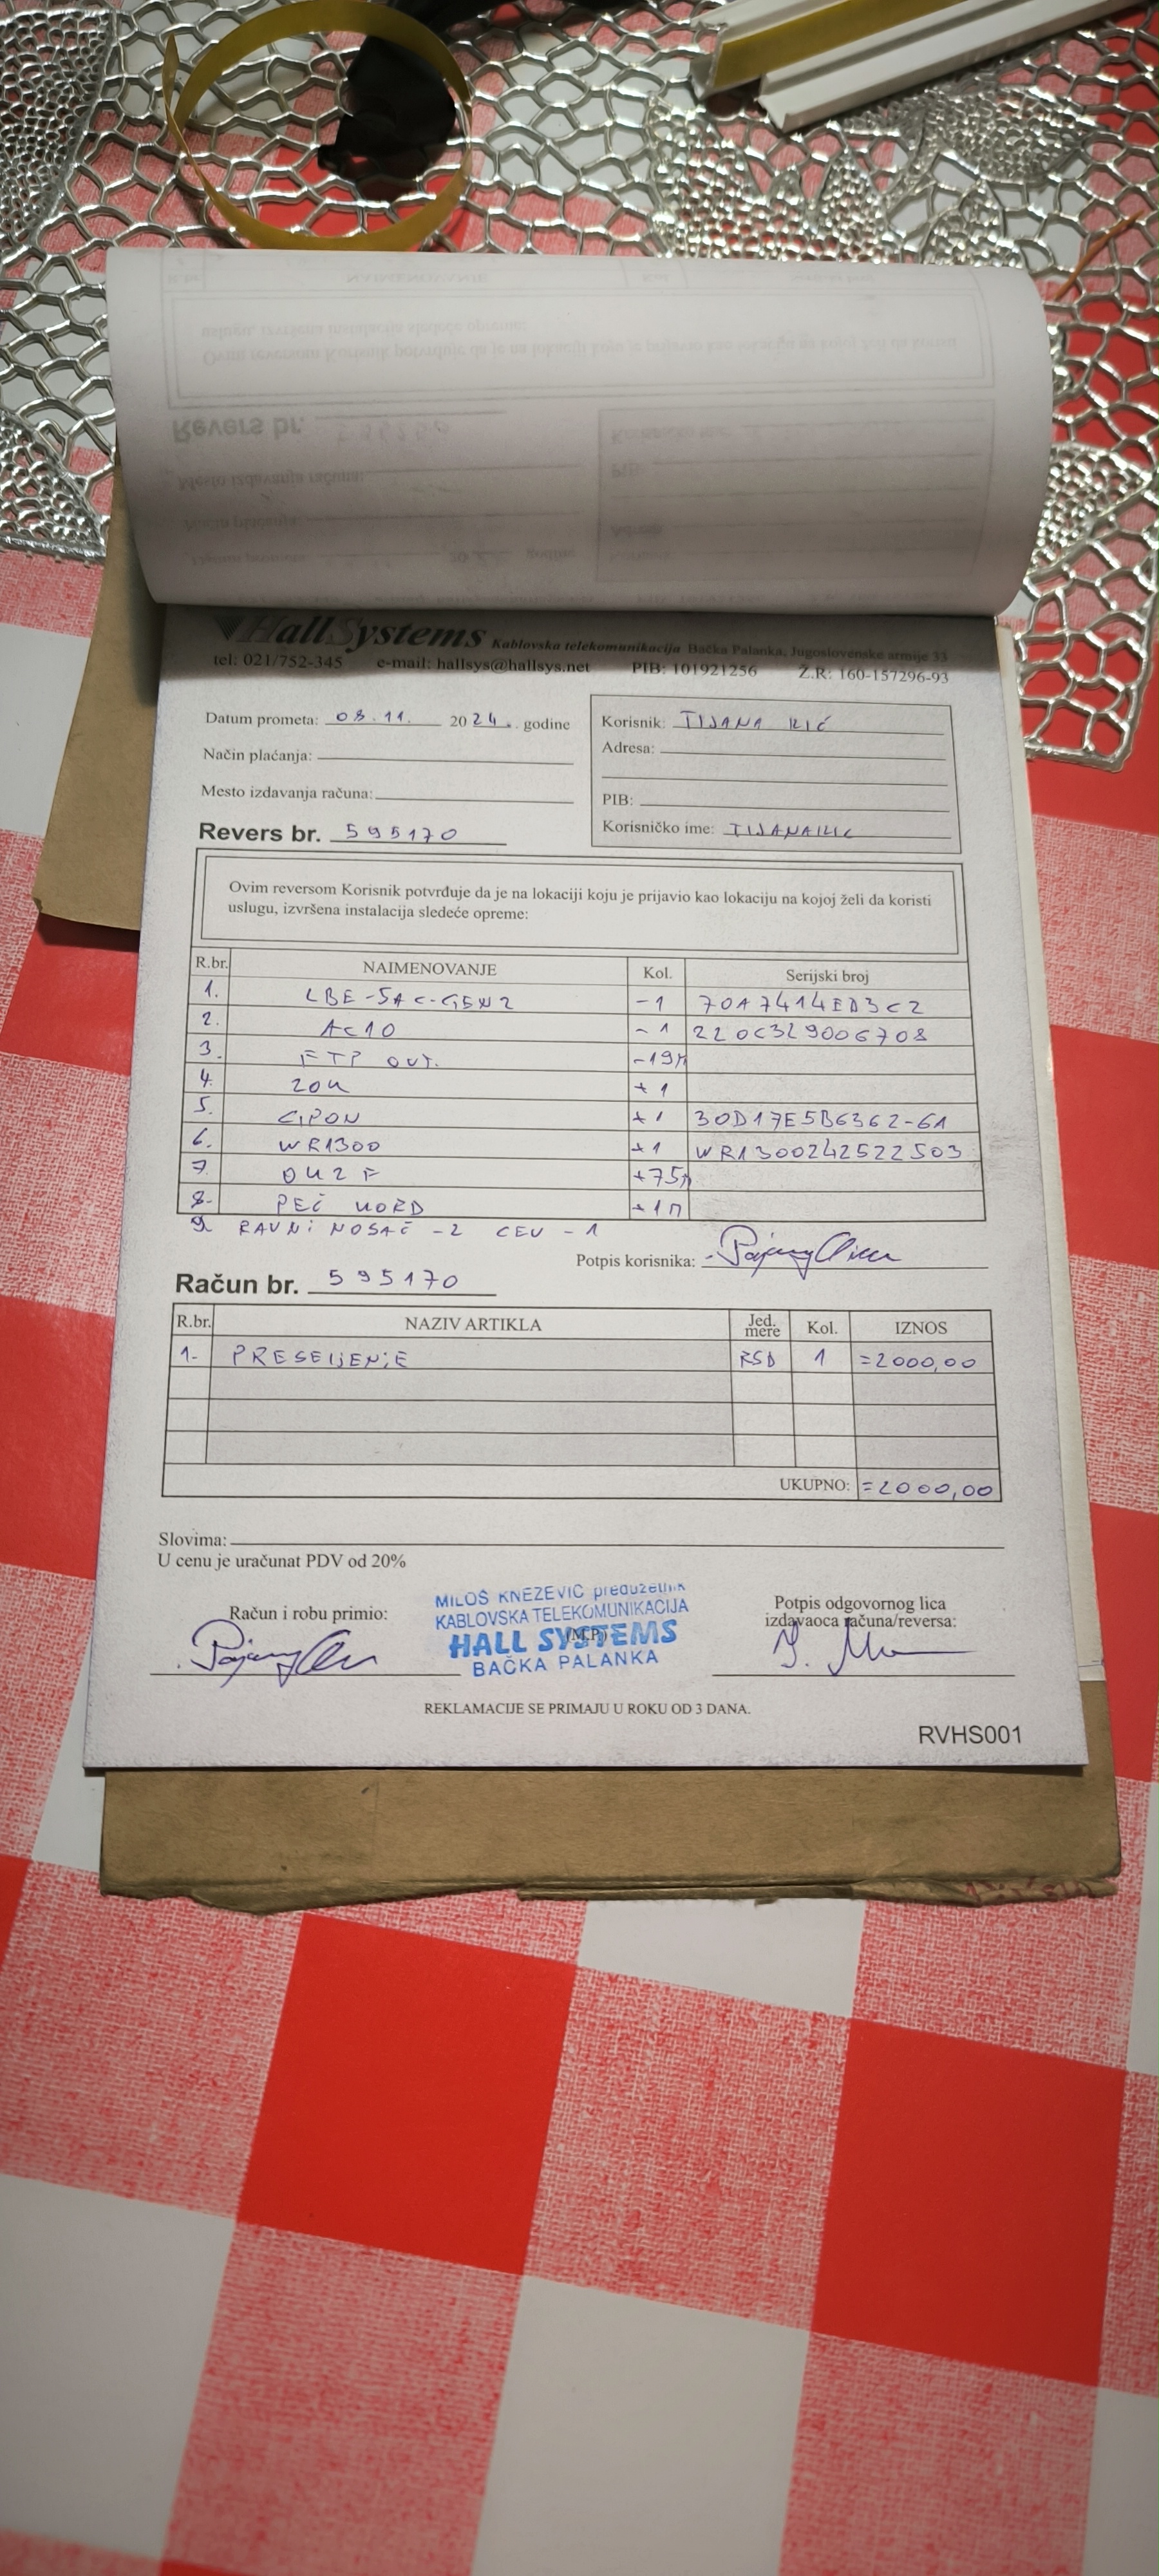 HallSystems Kablovska telekomunikacija Bačka Palanka, Jugoslovenske armije 33
tel: 021/752-345 e-mail: hallsys@hallsys.net PIB: 101921256 Ž.R: 160-157296-93
Datum prometa: 08.11. 2024. godine
Način plaćanja:
Mesto izdavanja računa:
Revers br. 595170
Korisnik: TIJANA ILIĆ
Adresa:
PIB:
Korisničko ime: TIJANAILIC
Ovim reversom Korisnik potvrđuje da je na lokaciji koju je prijavio kao lokaciju na kojoj želi da koristi
uslugu, izvršena instalacija sledeće opreme:
R.br. NAIMENOVANJE Kol. Serijski broj
1. LBE-5AC-GEN2 -1 70A7414ED3C2
2. AC10 -1 220C329006708
3. FTP OUT. -19m
4. ZOK +1
5. GPON +1 30D17E5B6362-6A
6. WR1300 +1 WR1300242522503
7. OK2F +75m
8. PEČ KORD +1m
9. RAVNI NOSAČ -2 CEV -1
Potpis korisnika:
Račun br. 595170
R.br. NAZIV ARTIKLA Jed. mere Kol. IZNOS
1. PRESELJENJE RSD 1 =2000,00
UKUPNO: =2000,00
Slovima:
U cenu je uračunat PDV od 20%
Račun i robu primio:
MILOŠ KNEŽEVIĆ preduzetnik
KABLOVSKA TELEKOMUNIKACIJA
HALL SYSTEMS
(M.P.)
BAČKA PALANKA
Potpis odgovornog lica
izdavaoca računa/reversa:
REKLAMACIJE SE PRIMAJU U ROKU OD 3 DANA.
RVHS001